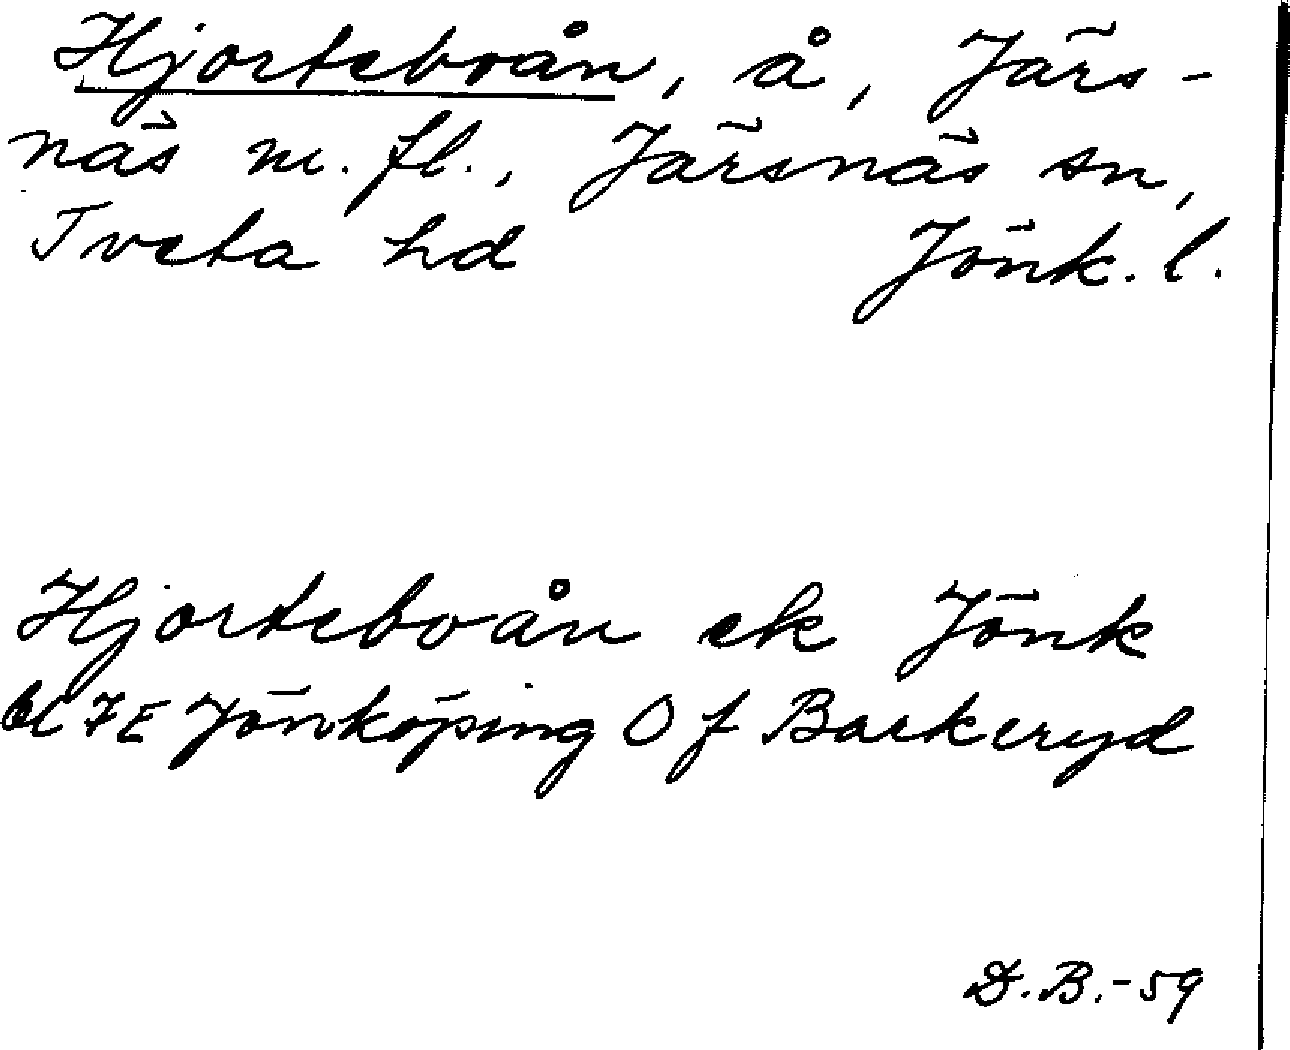 Hjorteboån, å, Järs-
näs m. fl., Järsnäs sn,
Tveta hd Jönk. l.
Hjorteboån ek Jönk
bl 7E Jönköping O f Barkeryd
D.B.-59